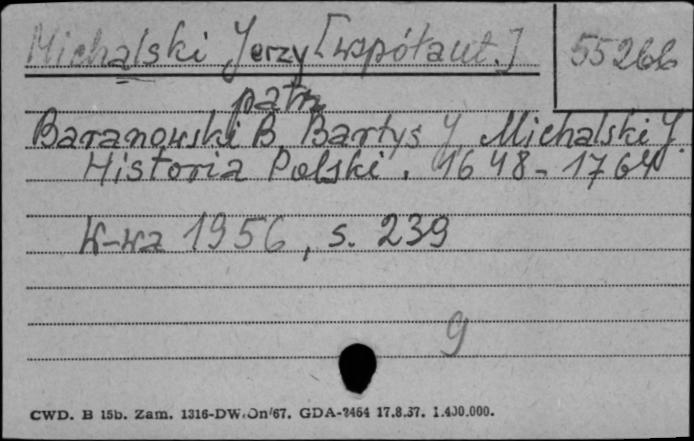 Michalski Jerzy [współaut.]
55266
patrz
Baranowski B. Bartys J. Michalski J.
Historia Polski. 1648-1764
W-wa 1956, s. 239
9
CWD. B 15b. Zam. 1316-DW.On/67. GDA-2464 17.8.67. 1.400.000.